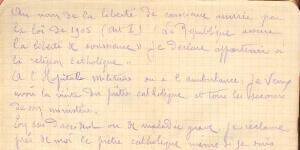 Au nom de la liberté de conscience assurée par
la loi de 1905 (Art I) La République assure
la liberté de conscience" je déclare appartenir à
la religion catholique"
A l'Hôpital militaire ou à l'ambulance, je veux
avoir la visite du prêtre catholique et tous les secours
de son ministère.
En cas d'accident ou de maladie grave je réclame
près de moi le prêtre catholique même si je suis